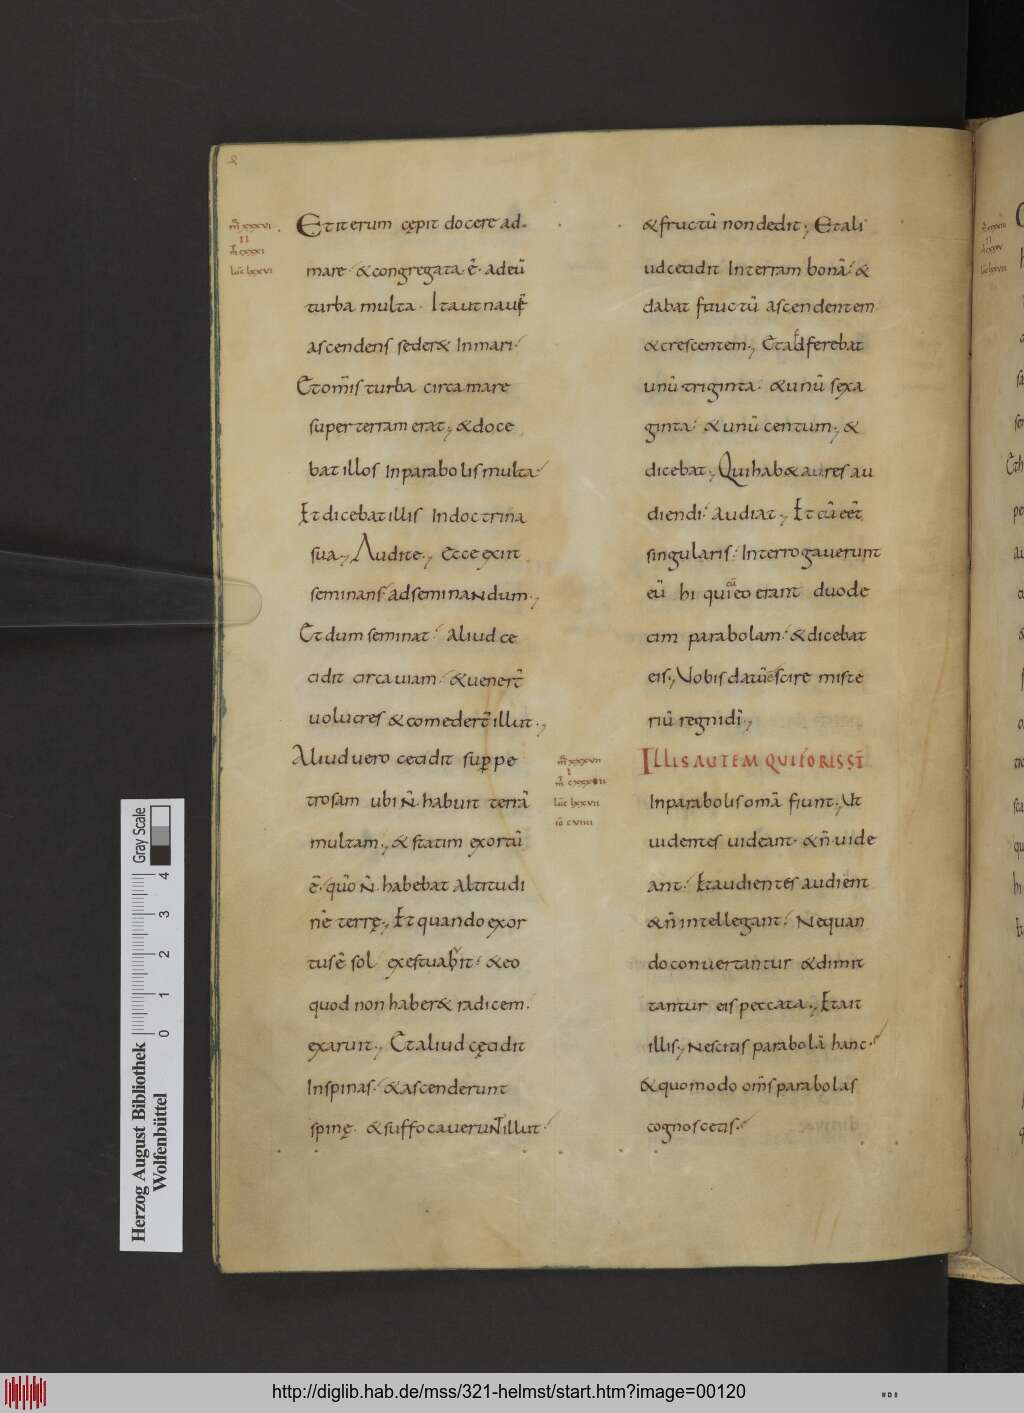 Et iterum cępit docere ad
mare· & congregata· ē· ad eū
turba multa· Ita ut nauē
ascendens seder& In mari·
Et om̄is turba circa mare
super terram erat·, & doce
bat illos In parabolis multa·
Et dicebat illis In doctrina
sua·, Audite·, Ecce exiit
seminans· ad seminandum·,
Et dum seminat· Aliud ce
cidit circa uiam· & uener̄t
uolucres & comeder̄t illut·,
Aliud uero cecidit sup pe
trosam ubi N̄· habuit terrā
multam·, & statim exortū
ē· qūo N̄· habebat Altitudi
nē terrę·, Et quando exor
tus ē sol exęstuabit· & eo
quod non haber& radicem·
exaruit·, Et aliud cęcidit
In spinas· & ascenderunt
spinę· & suffocauerunt illut·
& fructū non dedit·, Et ali
ud cecidit In terram bonā· &
dabat fructū ascendentem
& crescentem·, Et adferebat
unū· triginta· & unū sexa
ginta· & unū centum·, &
dicebat·, Qui hab& aures au
diendi· Audiat·, Et cū eēt
singularis· Interrogauerunt
eū hi qui cū eo erant duode
cim parabolam· & dicebat
eis·, Vobis datū ē scire miste
riū regni dī·,
Illis autem qui foris st̄
In parabolis omā fiunt·, Ut
uidentes uideant· & n̄· uide
ant· Et audientes audient
& n̄ intellegant· Nequan
do conuertantur & dimit
tantur eis peccata·, Et ait
illis·, Nescitis parabolā hanc·
& quomodo om̄s parabolas
cognoscetis·
Herzog August Bibliothek
Wolfenbüttel
0 1 2 3 4
Gray Scale
http://diglib.hab.de/mss/321-helmst/start.htm?image=00120